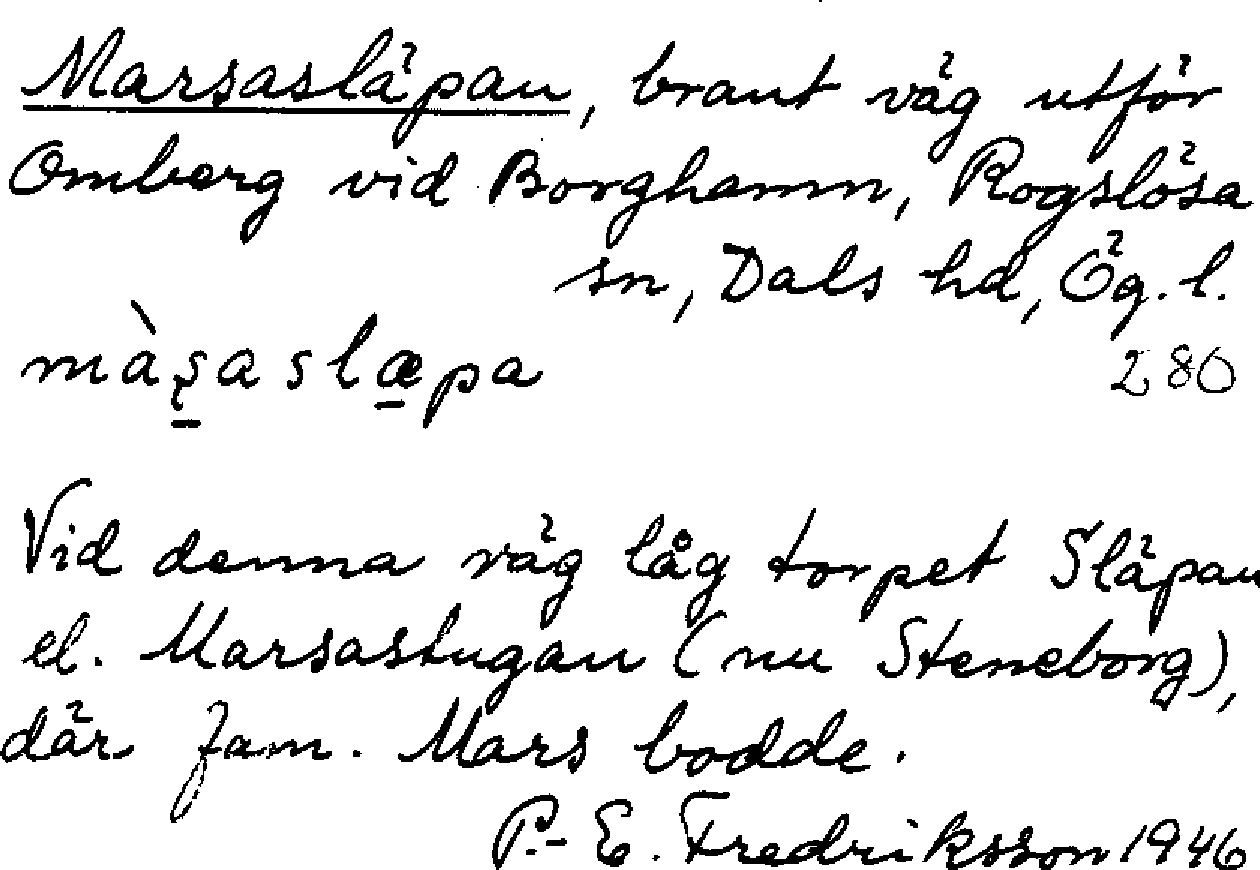 Marsasläpan, brant väg utför
Omberg vid Borghamn, Rogslösa
sn, Dals hd, Ög. l.
màs̠aslæ̠pa 280
Vid denna väg låg torpet Släpan
el. Marsastugan (nu Steneborg),
där fam. Mars bodde.
P.-E. Fredriksson 1946